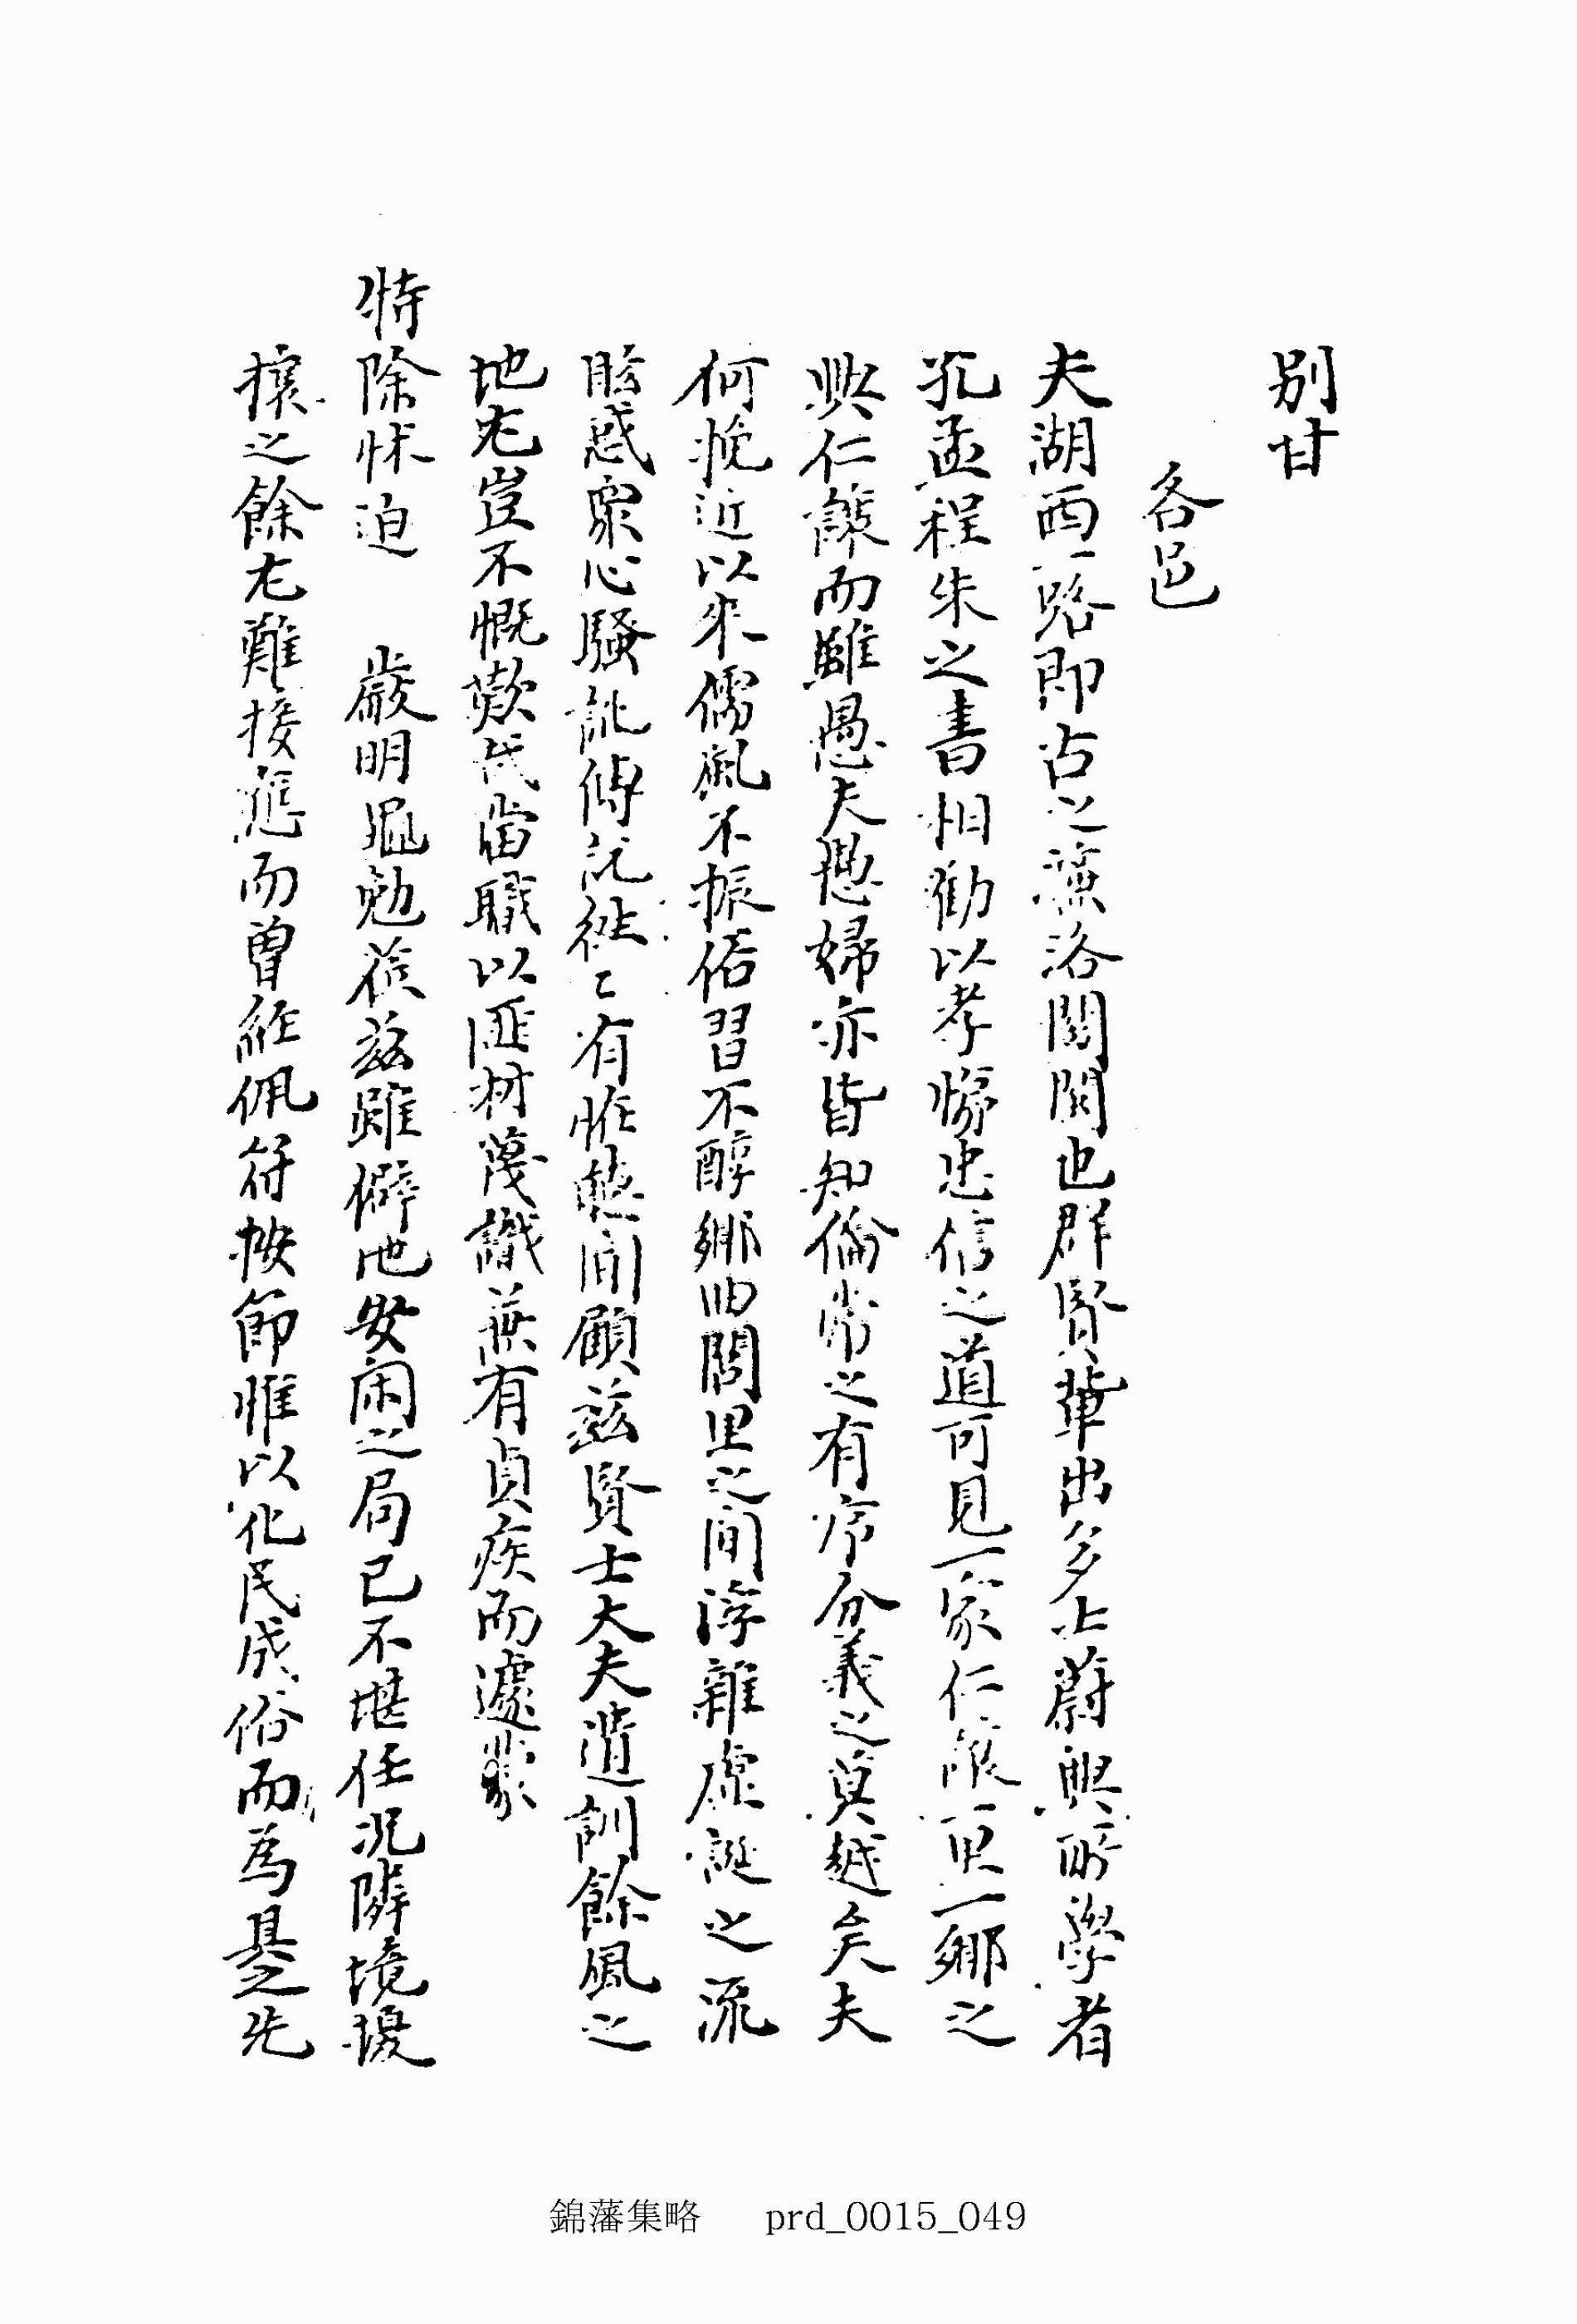 別甘
各邑
夫湖西一路即古之濂洛關閩也群賢輩出多士蔚興所學者
孔孟程朱之書相勸以孝悌忠信之道可見一家仁讓一里一鄉之
興仁讓而雖愚夫愚婦亦皆知倫常之有序分義之莫越矣夫
何挽近以來儒風不振俗習不醇鄉曲閭里之間浮雜虛誕之流
眩惑衆心騷訛傳訛徃〻有怪慝間顧玆賢士大夫遺訓餘風之
地尤豈不慨歎哉當職以匪材蔑識兼有貞疾而遽蒙
特除怵迫 嚴明黽勉莅玆雖僻地安閑之局已不堪任况隣境擾
攘之餘尤難接應而曾經佩符按節惟以化民成俗而爲急先
錦藩集略 prd_0015_049